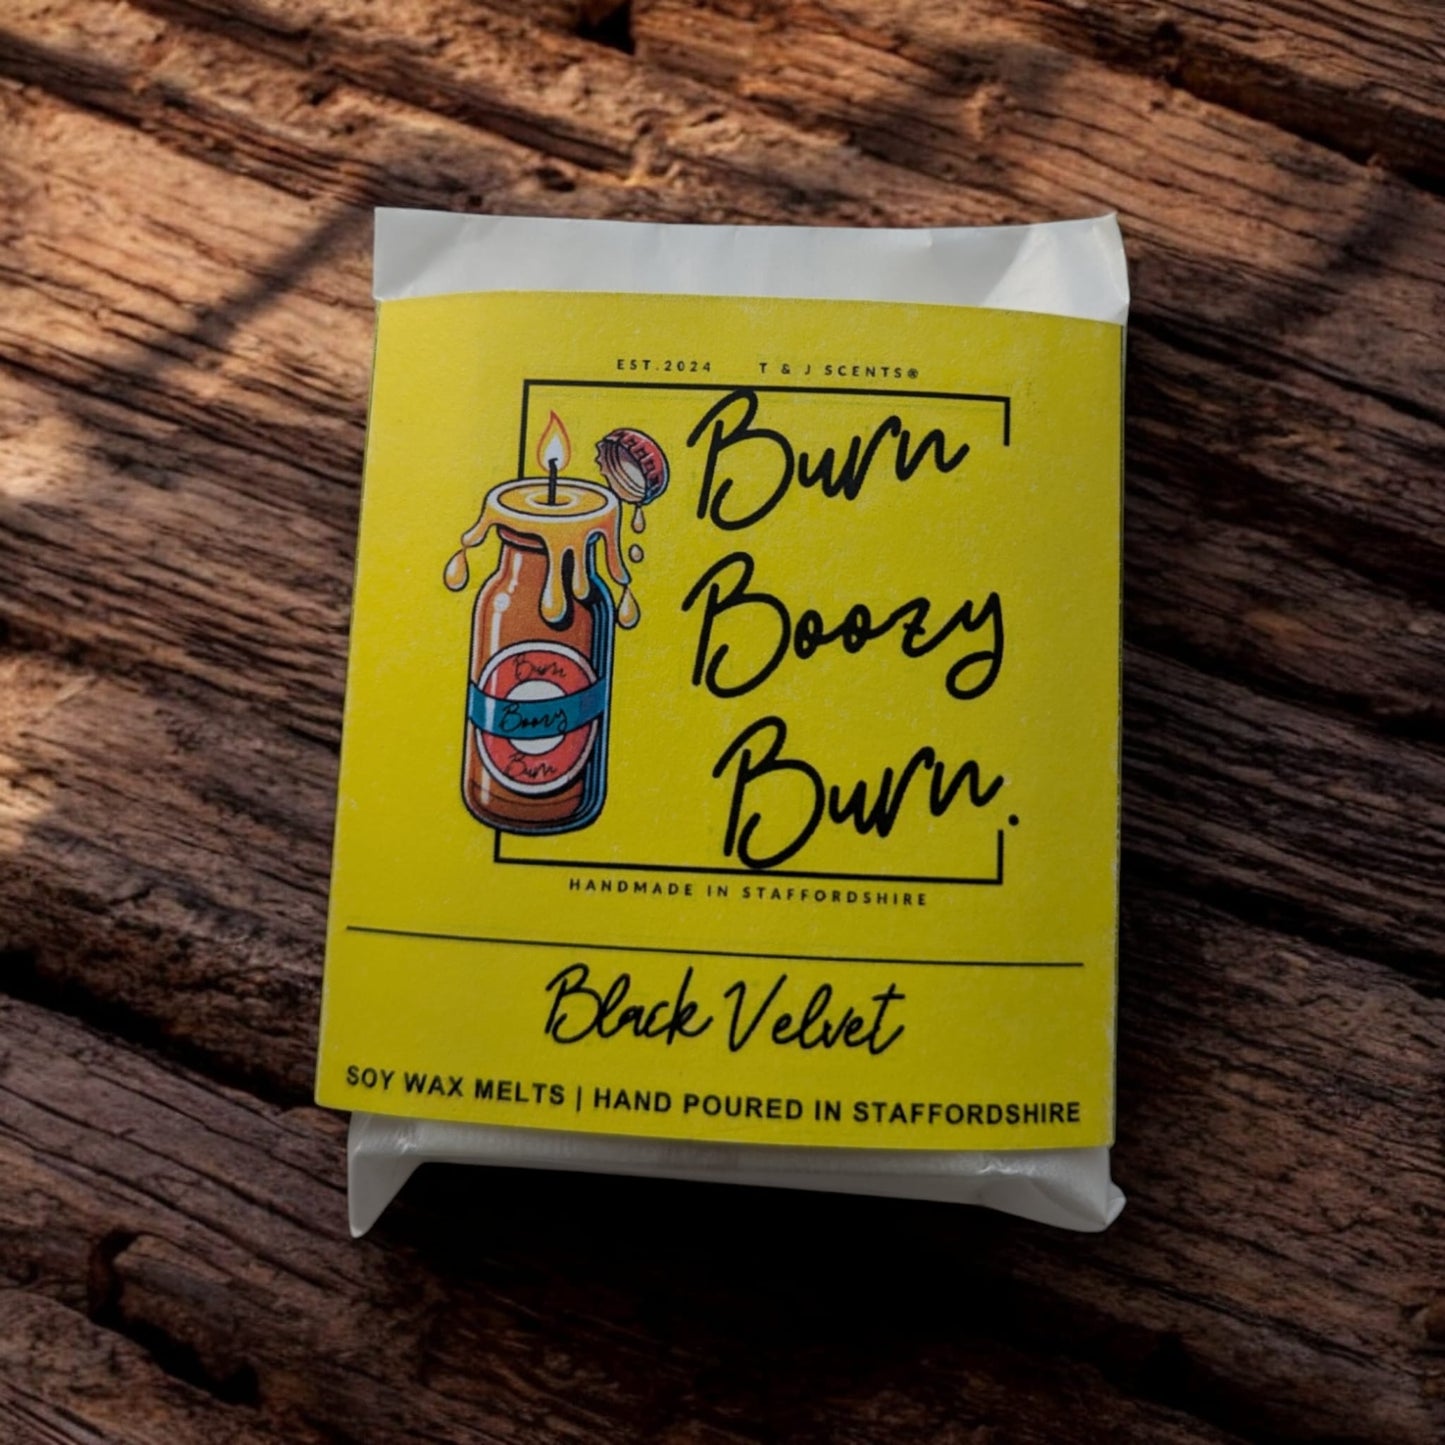 EST.2024 T & J SCENTS®
Burn
Boozy
Burn.
Burn
Boozy
Burn
HANDMADE IN STAFFORDSHIRE
Black Velvet
SOY WAX MELTS | HAND POURED IN STAFFORDSHIRE